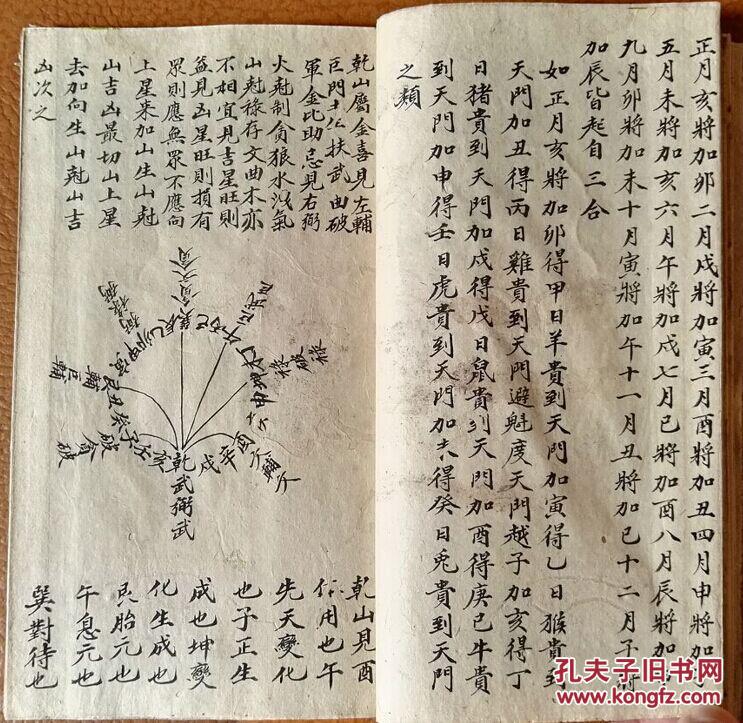 正月亥將加卯二月戌將加寅三月酉將加丑四月申將加
五月未將加亥六月午將加戌七月巳將加酉八月辰將加
九月卯將加未十月寅將加午十一月丑將加巳十二月子將
加辰皆起自三合
如正月亥將加卯得甲日羊貴到天門加寅得乙日猴貴到
天門加丑得丙日雞貴到天門避魁度天門越子加亥得丁
日豬貴到天門加戌得戊日鼠貴到天門加酉得庚已牛貴
到天門加申得壬日虎貴到天門加未得癸日兎貴到天門
之類
乾山屬金喜見左輔
巨門土仏扶武曲破
軍金比助忌見右弼
火尅制貪狼水洩氣
山尅祿存文曲木亦
不相宜見吉星旺則
益見凶星旺則損有
眾則應無眾不應向
上星來加山生山尅
山吉凶最切山上星
去加向生山尅山吉
凶次之
乾武弼武
乾山見酉
作用也午
先天變化
也子正生
成也坤變
化生成也
艮胎元也
午息元也
巽對待也
孔夫子旧书网
www.kongfz.com